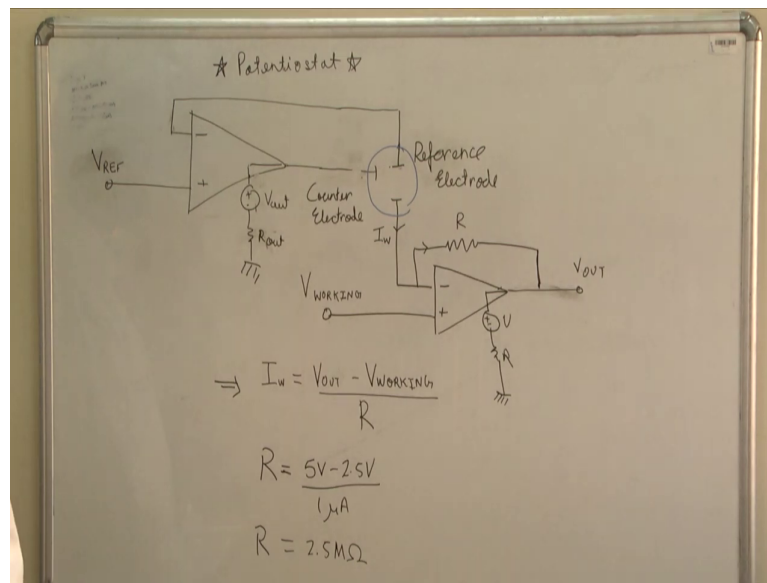 ☆ Potentiostat ☆
−
+
VREF
Vout
Rout
Counter
Electrode
Reference
Electrode
Iw
R
VOUT
−
+
VWORKING
V
R
⇒ Iw = VOUT − VWORKING
R
R = 5V−2.5V
1μA
R = 2.5MΩ